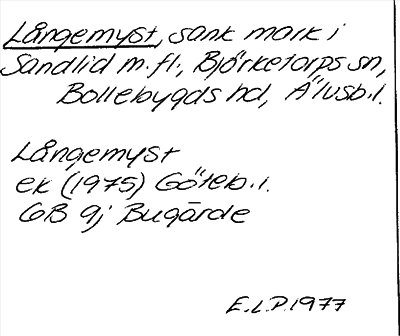 Långemyst, sank mark i
Sandlid m.fl., Björketorps sn,
Bollebygds hd, Älvsb.l.
Långemyst
ek (1975) Göteb.l.
GB 9j Bugärde
E.L.P. 1977